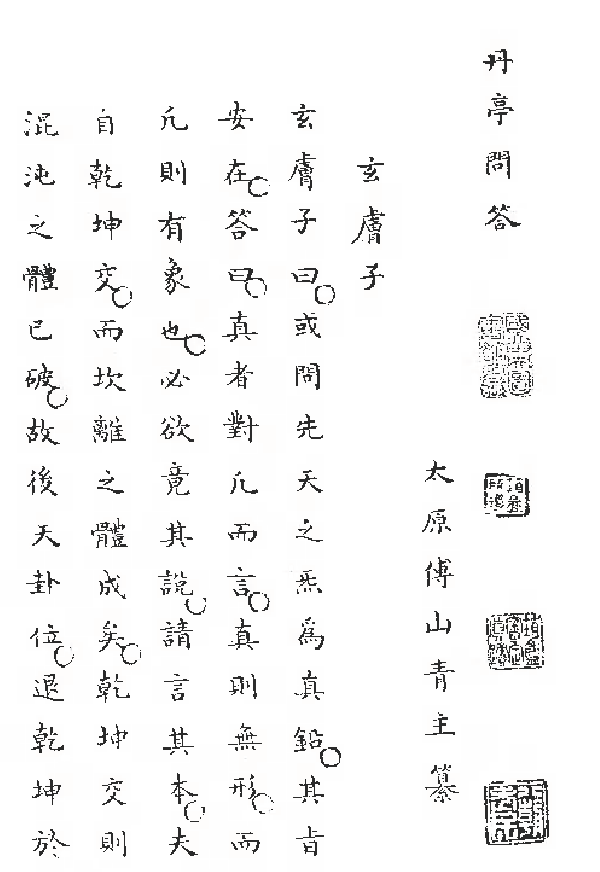 丹亭問答
太原傅山青主纂
玄膚子
玄膚子曰或問先天之炁為真鉛其旨
安在答曰真者對凢而言真則無形而
凢則有象也必欲竟其說請言其本夫
自乾坤交而坎離之體成矣乾坤交則
混沌之體已破故後天卦位退乾坤於